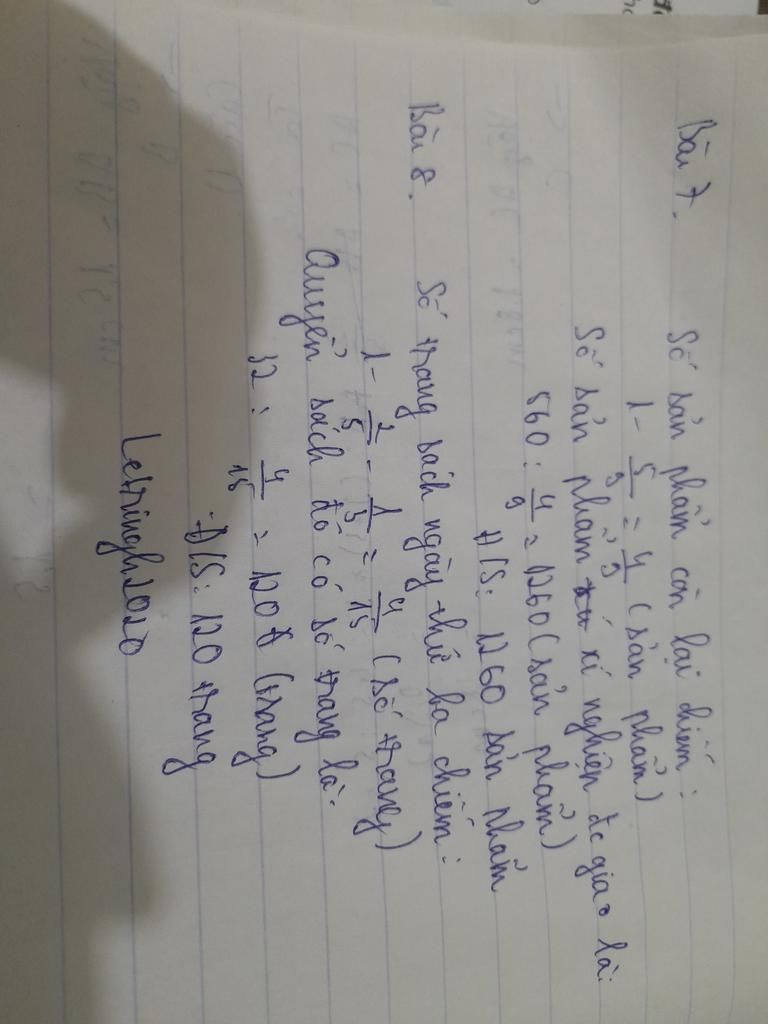 Bài 7.
Số sản phẩm còn lại chiếm:
1 - 5/9 = 4/9 (sản phẩm)
Số sản phẩm xí nghiệp đc giao là:
560 : 4/9 = 1260 (sản phẩm)
Đ/S: 1260 sản phẩm
Bài 8. Số trang sách ngày thứ ba chiếm:
1 - 2/5 - 1/3 = 4/15 (số trang)
Quyển sách đó có số trang là:
32 : 4/15 = 120 (trang)
Đ/S: 120 trang
Letringh2020